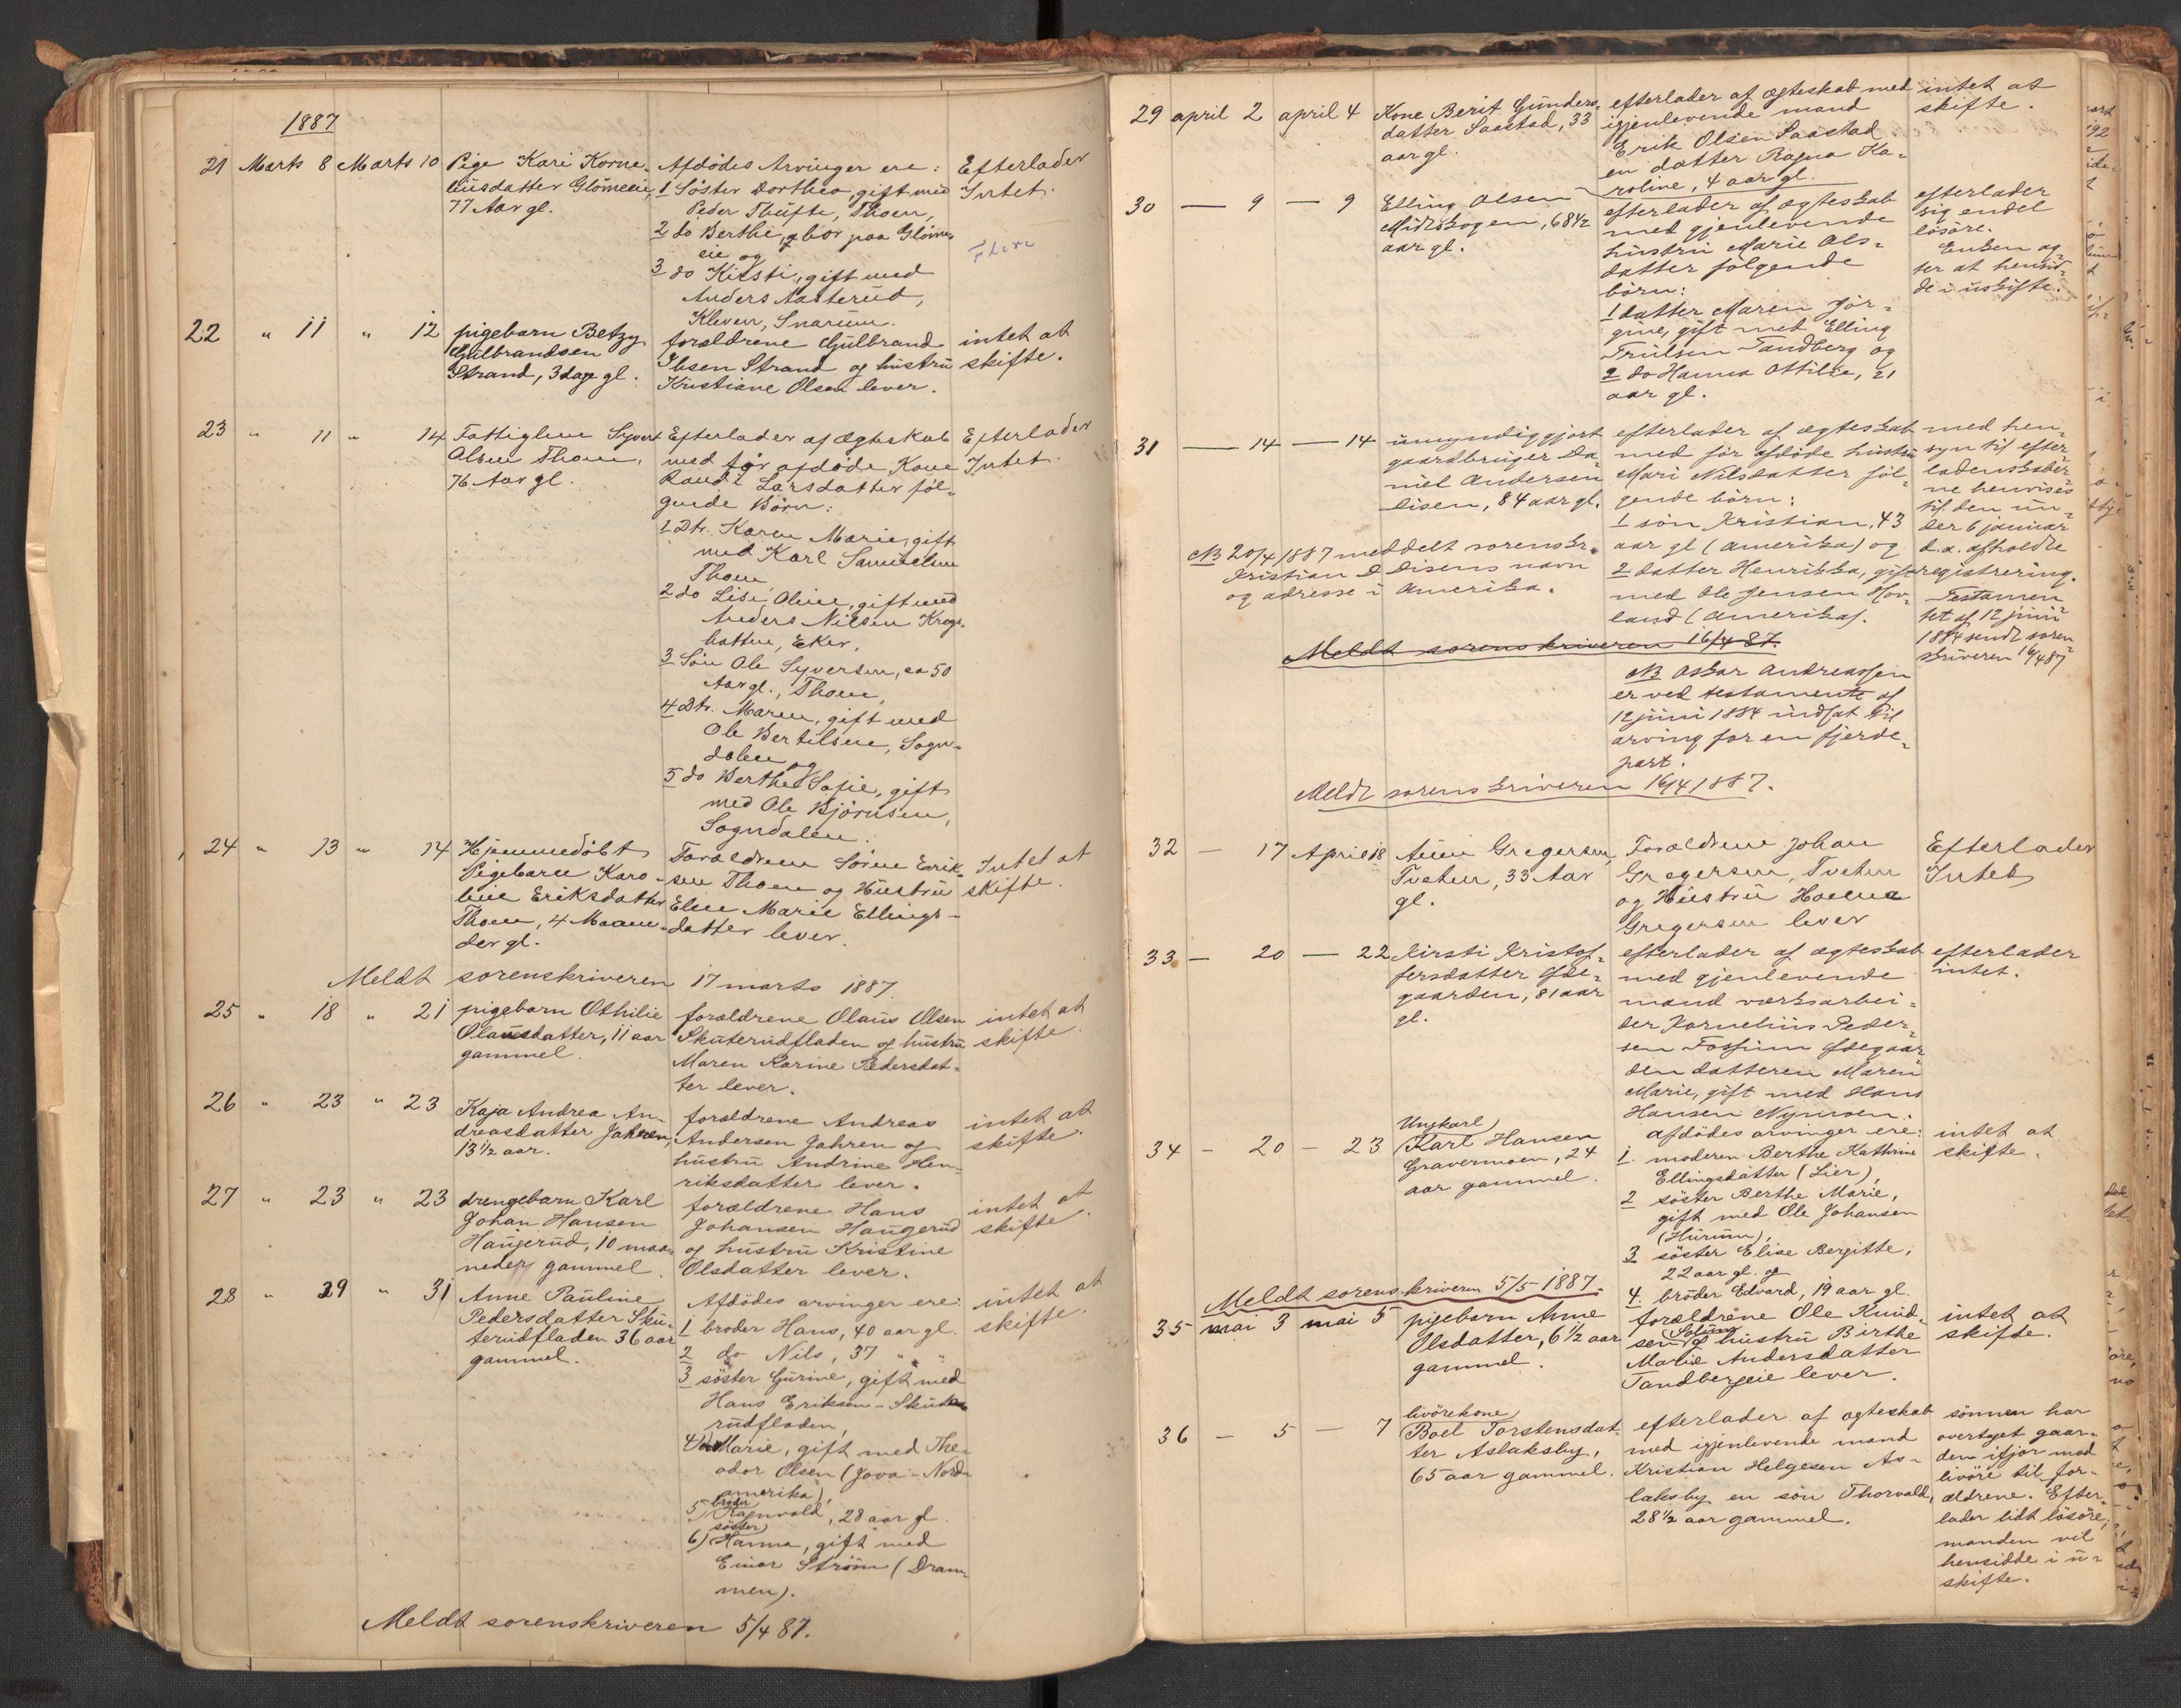 1887
21 Marts 8 Marts 10 Pige Kari Korne-
liusdatter Glömeeie,
77 Aar gl.
Afdödes Arvinger ere:
1 Söster Dorthea, gift med
Peder Thufte, Thoen,
2 do Berthe, bor paa Glömes
eie og
3 do Kirsti, gift med
Anders Aasterud,
Kleven, Snarum.
Efterlader
Intet.
22 " 11 " 12 pigebarn Betzy
Gulbrandsen
Strand, 3 dage gl.
forældrene Gulbrand
Ibsen Strand og hustru
Kristiane Olsen lever.
intet at
skifte.
23 " 11 " 14 Fattiglem Syvert
Olsen Thoen,
76 Aar gl.
Efterlader af Ægteskab
med før afdöde Kone
Randi Larsdatter föl-
gende Börn:
1 Dtr. Karen Marie, gift
med Karl Samuelsen
Thoen
2 do Lise Oline, gift med
Anders Nilsen Krogs-
hatten, Eker,
3 Sön Ole Syversen, ca 50
Aar gl., Thoen,
4 Dtr. Maren, gift med
Ole Bertilsen, Sogn-
dalen og
5 do Berthe Sofie, gift
med Ole Björnsen,
Sogndalen.
Efterlader
Intet.
24 " 13 " 14 Hjemmedöbt
Pigebarn Karo-
line Eriksdatter
Thoen, 4 Maane-
der gl.
Forældrene Sören Erik-
sen Thoen og Hustru
Elen Marie Ellings-
datter lever.
Intet at
skifte.
Meldt sorenskriveren 17 marts 1887.
25 " 18 " 21 pigebarn Othilie
Olausdatter, 11 aar
gammel.
forældrene Olaus Olsen
Skuterudfladen og hustru
Maren Karine Pedersdat-
ter lever.
intet at
skifte.
26 " 23 " 23 Kaja Andrea An-
dreasdatter Jahren,
13 1/2 aar.
forældrene Andreas
Andersen Jahren og
hustru Andrine Hen-
riksdatter lever.
intet at
skifte.
27 " 23 " 23 drengebarn Karl
Johan Hansen
Haugerud, 10 maa-
neder gammel.
forældrene Hans
Johansen Haugerud
og hustru Kristine
Olsdatter lever.
intet at
skifte.
28 " 29 " 31 Anne Pauline
Pedersdatter Sku-
terudfladen 36 aar
gammel.
Afdödes arvinger ere:
1 broder Hans, 40 aar gl.
2 do Nils, 37 " "
3 söster Gurine, gift med
Hans Eriksen Skute-
rudfladen,
4 do Marie, gift med The-
odor Olsen (Jova - Nord-
amerika),
5 broder Ragnvald, 28 aar gl.
6) söster Hanna, gift med
Einar Ström (Dram-
men).
intet at
skifte.
Meldt sorenskriveren 5/4 87.
29 april 2 april 4 Kone Berit Gunders-
datter Saastad, 33
aar gl.
efterlader af ægteskab med
igjenlevende mand
Erik Olsen Saastad
en datter Ragna Ka-
roline, 4 aar gl.
intet at
skifte.
30 — 9 — 9 Elling Olsen
Midtskogen, 68 1/2
aar gl.
efterlader af ægteskab
med gjenlevende
hustru Marie Ols-
datter følgende
börn:
1 datter Maren Jör-
gine, gift med Elling
Trulsen Tandberg og
2 do Hanna Ottilie, 21
aar gl.
efterlader
sig endel
lösöre.
Enken ag-
ter at hensid-
de i uskifte.
31 — 14 — 14 umyndiggjort
gaardbruger Da-
niel Andersen
Disen, 84 aar gl.
efterlader af ægteskab
med för afdöde hustru
Mari Nilsdatter föl-
gende börn:
1 sön Kristian, 43
aar gl (Amerika) og
2 datter Henrikka, gift
med Ole Jensen Hov-
land (Amerika).
med hen-
syn til efter-
ladenskaber-
ne henvises
til den un-
der 6 januar
d. a. afholdte
registrering.
Testamen-
tet af 12 juni
1884 sendt soren-
skriveren 16/4 87
NB 20/4 1887 meddelt sorenskr.
Kristian D Disens navn
og adresse i Amerika.
Meldt sorenskriveren 16/4 87.
NB Oskar Andreassen
er ved testamente af
12 juni 1884 indsat til
arving for en fjerde-
part.
Meldt sorenskriveren 16/4 1887.
32 — 17 April 18 Gregersen
Tveten, 33 Aar
gl.
Forældrene Johan
Gregersen, Tveten
og Hustru
Gregersen lever
Efterlader
Intet
33 — 20 — 22 Kirsti Kristof-
fersdatter Øde-
gaarden, 81 aar
gl.
efterlader af ægteskab
med gjenlevende
mand værksarbei-
der Kornelius Peder-
sen Fossum Ødegaar-
den datteren Maren
Marie, gift med Hans
Hansen Nymoen.
efterlader
intet.
34 - 20 - 23 Ungkarl
Karl Hansen
Gravermoen, 24
aar gammel.
afdödes arvinger ere:
1. moderen Berthe Kathrine
Ellingsdatter (Lier),
2 söster Berthe Marie,
gift med Ole Johansen
(Hurum),
3 söster Elise Bergitte,
22 aar gl. og
4. broder Edvard, 19 aar gl.
intet at
skifte.
Meldt sorenskriveren 5/5 1887.
35 mai 3 mai 5 pigebarn Anne
Olsdatter, 6 1/2 aar
gammel.
forældrene Ole Knud-
sen Solum og hustru Birthe
Marie Andersdatter
Tandbergeie lever.
intet at
skifte.
36 — 5 — 7 livörekone
Boel Torstensdat-
ter Aslaksby,
65 aar gammel.
efterlader af ægteskab
med igjenlevende mand
Kristian Helgesen As-
laksby en sön Thorvald,
28 1/2 aar gammel.
sönnen har
overtaget gaar-
den ifjor mod
livöre til for-
ældrene. Efter-
lader lidt lösöre;
manden vil
hensidde i u-
skifte.